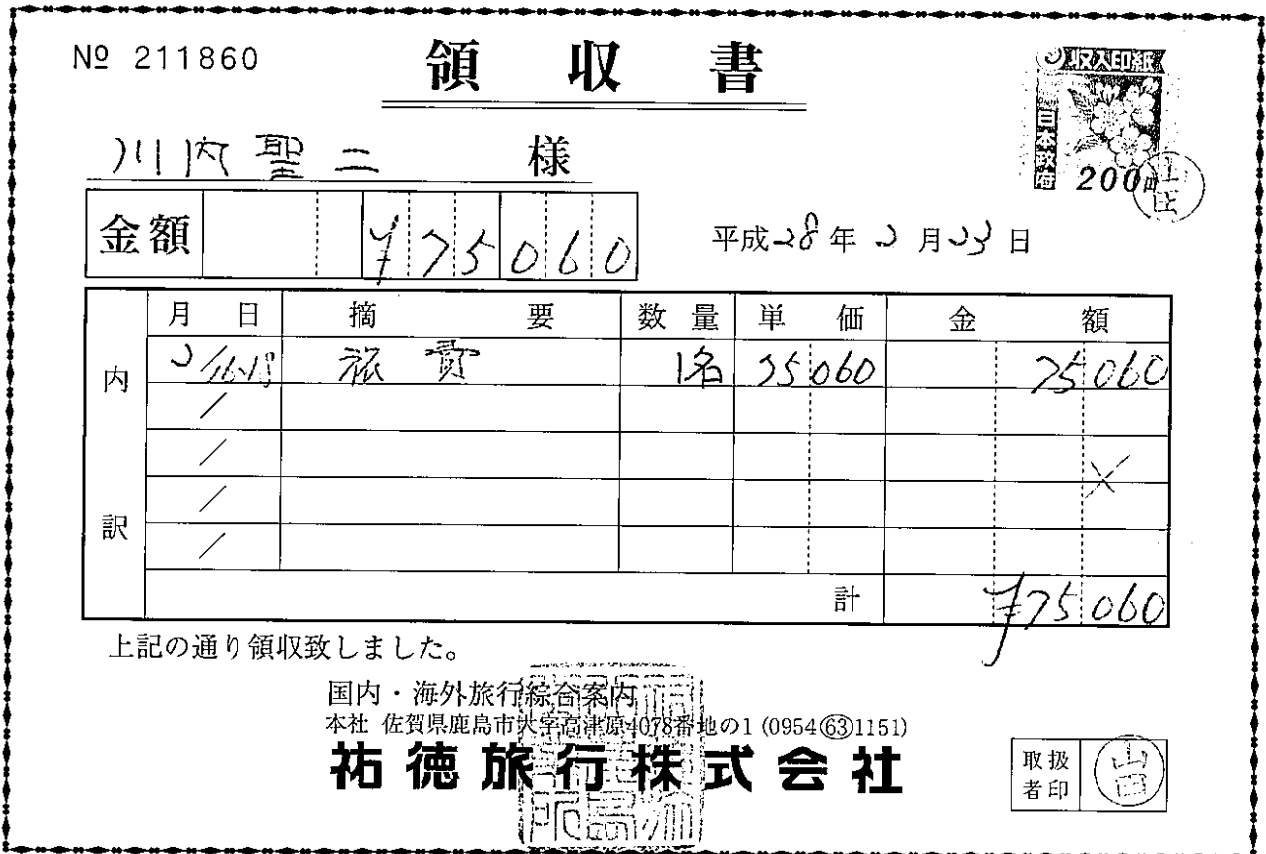 № 211860
領収書
収入印紙
日本政府
200円
川内聖二 様
金額 ¥75060
平成28年2月23日
内訳
月日 摘要 数量 単価 金額
2/16〜18 旅費 1名 75060 75060
/
/
/
/
計 ¥75060
上記の通り領収致しました。
国内・海外旅行綜合案内
本社 佐賀県鹿島市大字高津原4078番地の1 (0954㊿1151)
祐徳旅行株式会社
取扱者印 山田